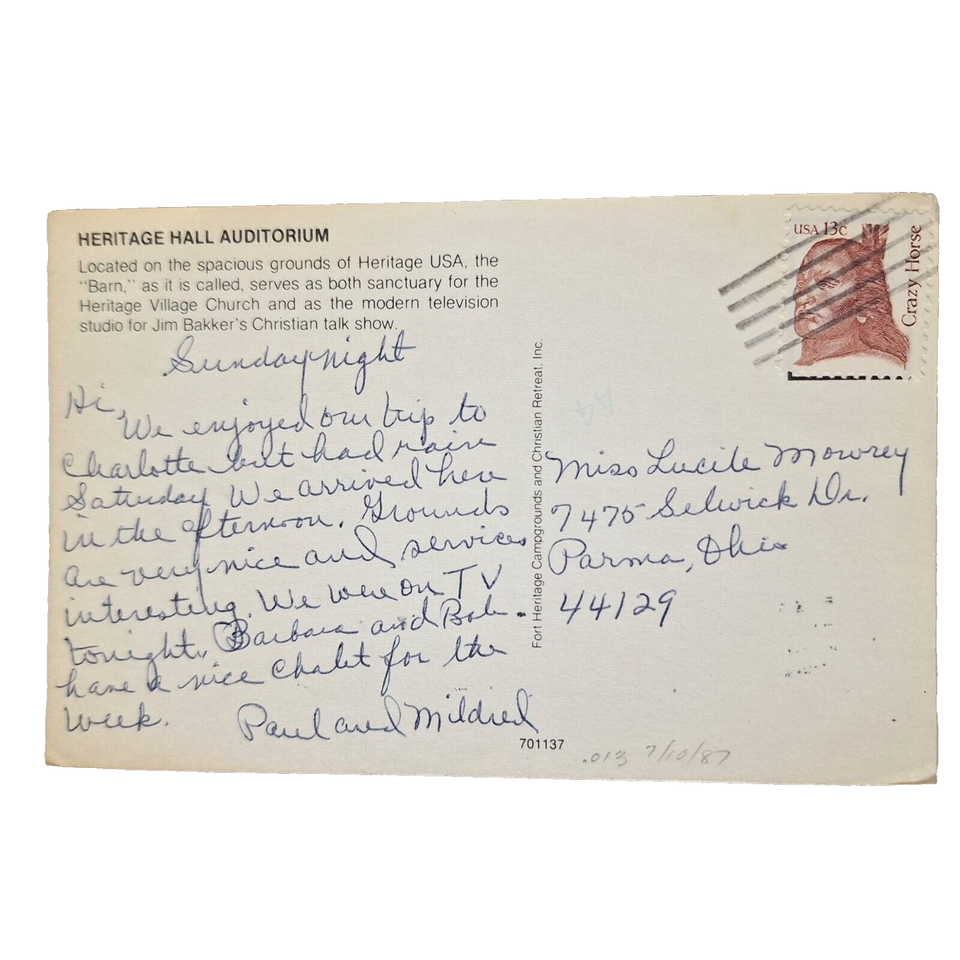 HERITAGE HALL AUDITORIUM
Located on the spacious grounds of Heritage USA, the
"Barn," as it is called, serves as both sanctuary for the
Heritage Village Church and as the modern television
studio for Jim Bakker's Christian talk show.
Sunday night
Hi,
We enjoyed our trip to
Charlotte but had rain
Saturday We arrived here
in the afternoon. Grounds
are very nice and services
interesting. We were on TV
tonight. Barbara and Bob
have a nice chalet for the
week.
Paul and Mildred
701137
Fort Heritage Campgrounds and Christian Retreat. Inc.
USA 13c
Crazy Horse
Miss Lucile Mowrey
7475 Selwick Dr.
Parma, Ohio
44129
.013 7/10/87